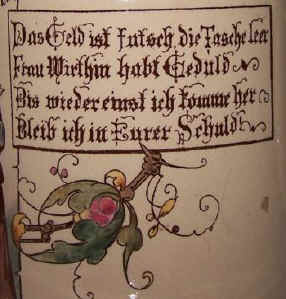 Das Geld ist futsch die Tasche leer
Frau Wirthin habt Geduld
Bis wieder einst ich komme her
Bleib ich in Eurer Schuld!